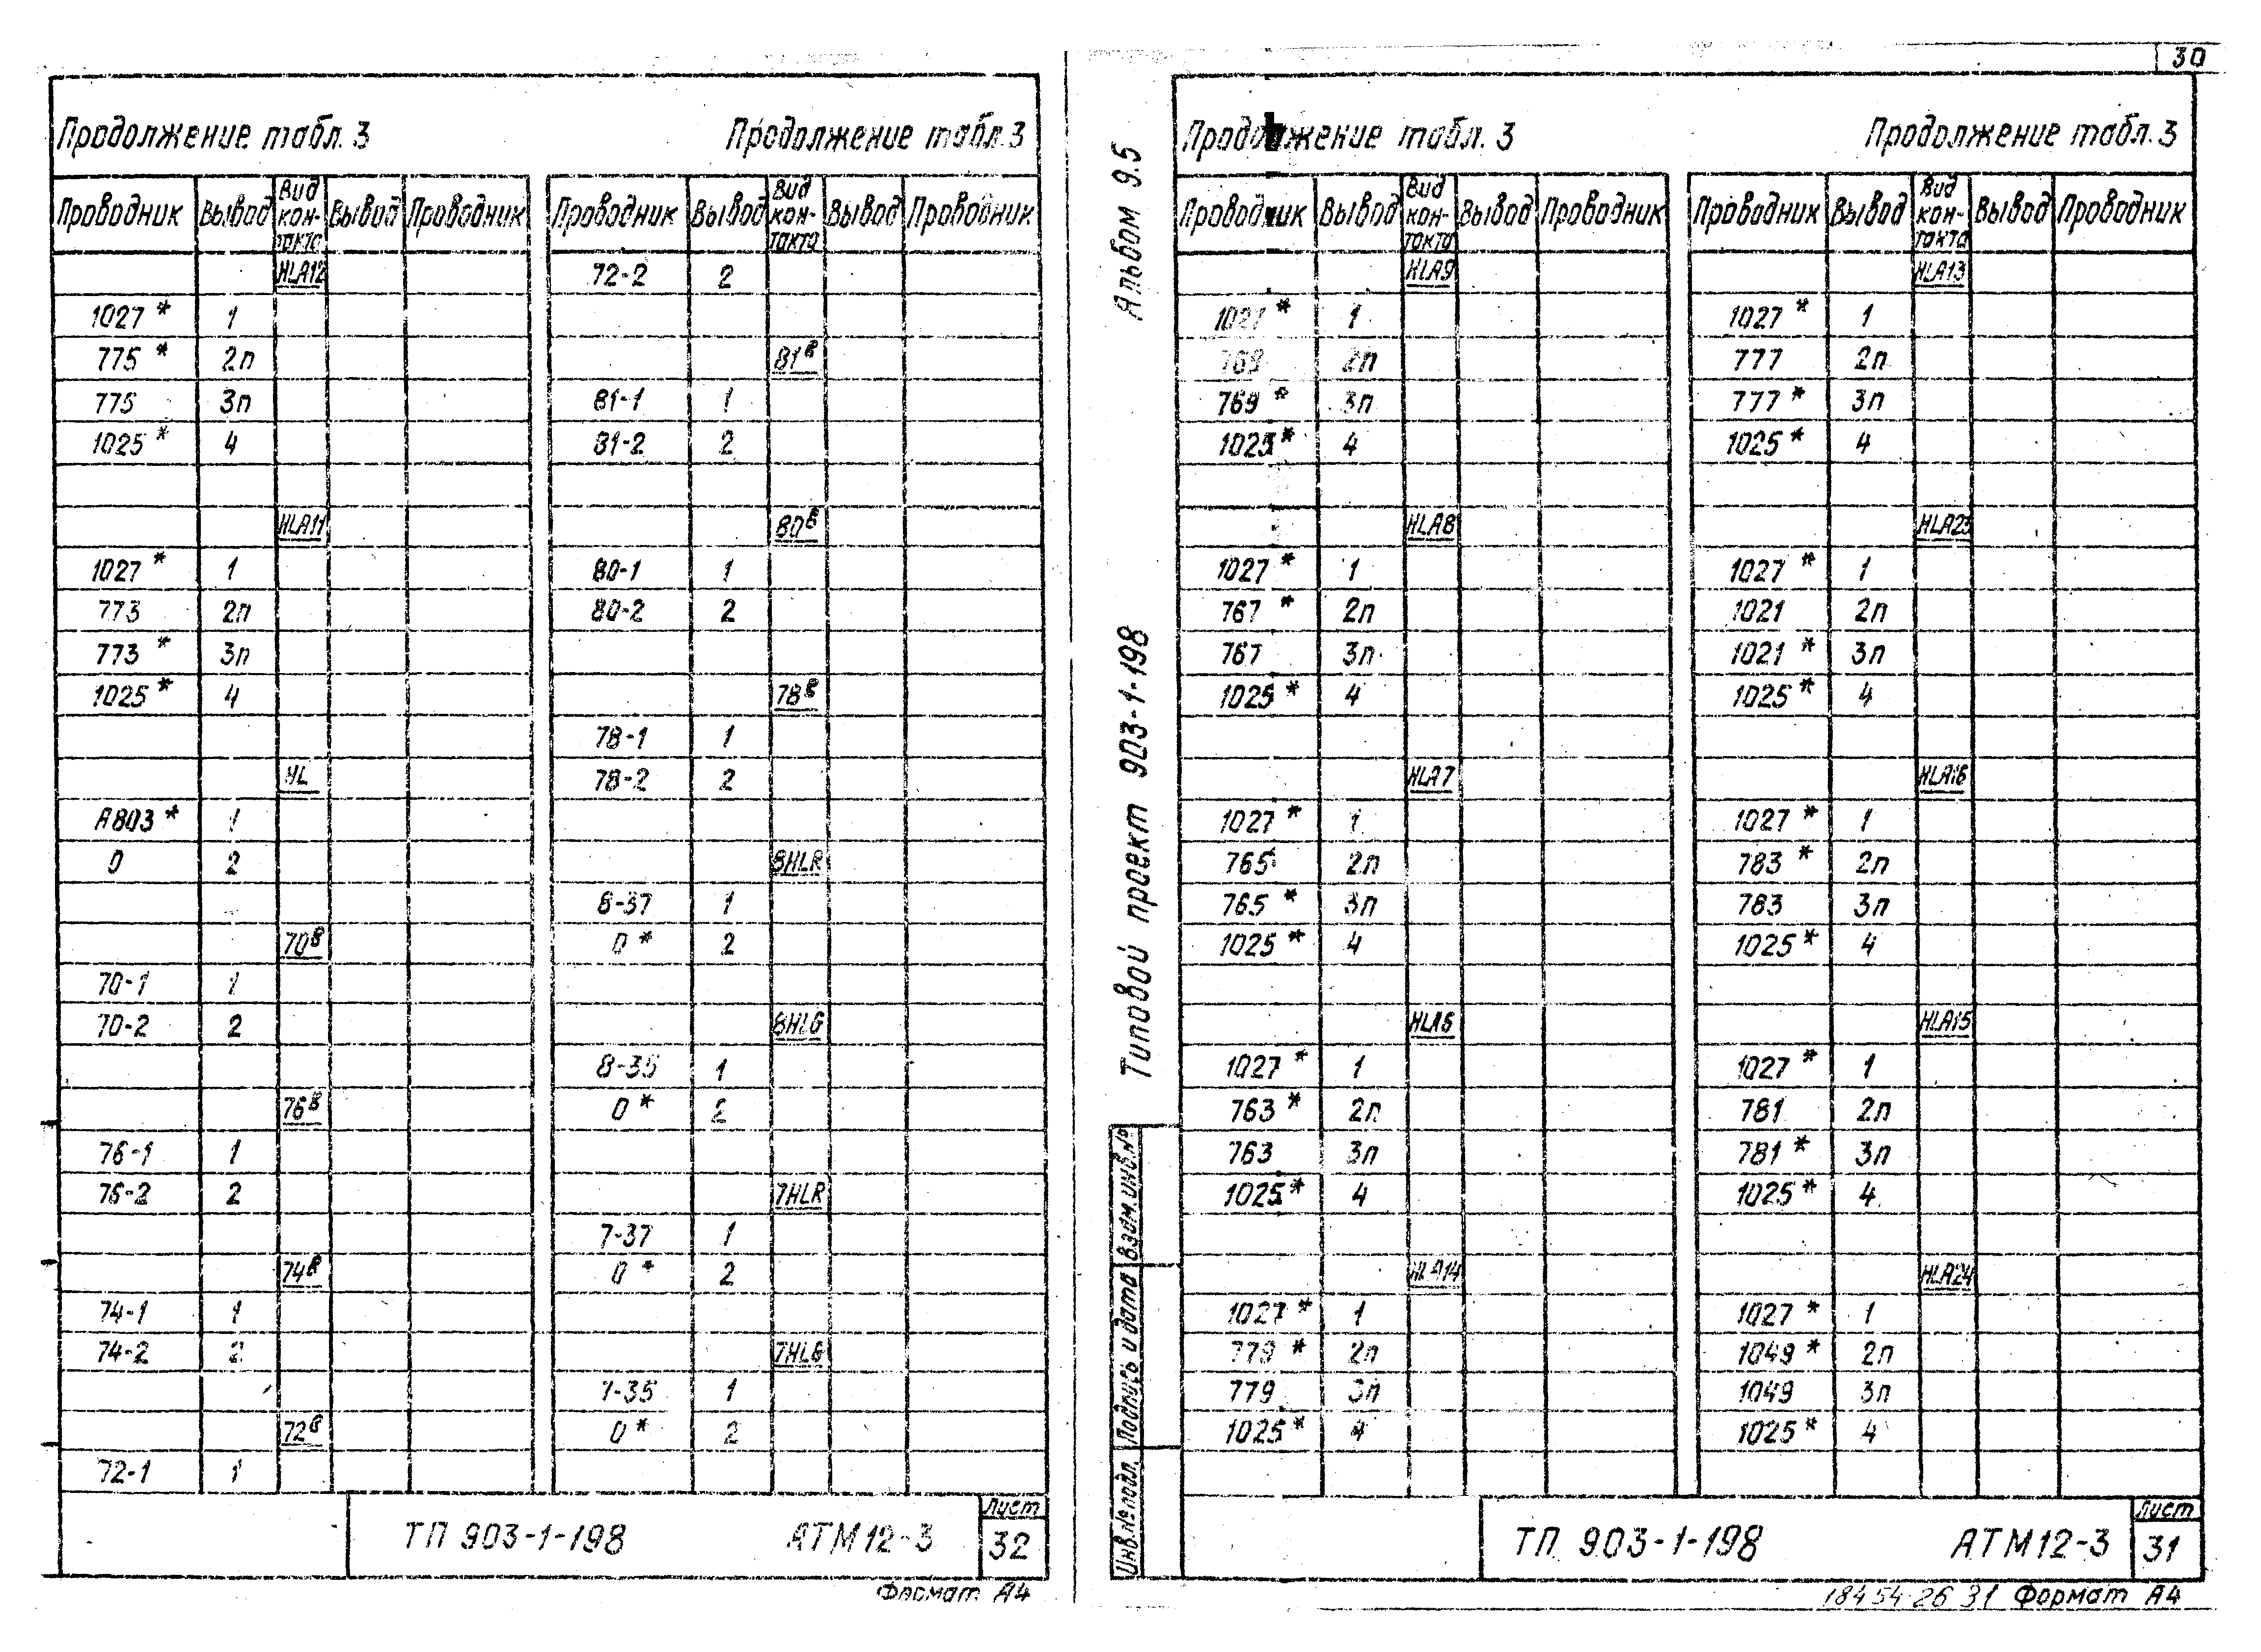 Продолжение табл. 3
Продолжение табл. 3
Проводник Вывод Вид кон-такта Вывод Проводник
Проводник Вывод Вид кон-такта Вывод Проводник
HLA12
1027 * 1
775 * 2п
775 3п
1025 * 4
HLA11
1027 * 1
773 2п
773 * 3п
1025 * 4
HL
А803 * 1
0 2
70В
70-1 1
70-2 2
76В
76-1 1
76-2 2
74В
74-1 1
74-2 2
72В
72-1 1
72-2 2
81В
81-1 1
81-2 2
80В
80-1 1
80-2 2
78В
78-1 1
78-2 2
8HLR
8-37 1
0 * 2
8HLG
8-35 1
0 * 2
7HLR
7-37 1
0 * 2
7HLG
7-35 1
0 * 2
ТП 903-1-198 АТМ12-3
Лист
32
Формат А4
30
Альбом 9.5
Типовой проект 903-1-198
Взам. инв. №
Подпись и дата
Инв. № подл.
Продолжение табл. 3
Продолжение табл. 3
Проводник Вывод Вид кон-такта Вывод Проводник
Проводник Вывод Вид кон-такта Вывод Проводник
HLA9
1027 * 1
769 2п
769 * 3п
1025 * 4
HLA8
1027 * 1
767 * 2п
767 3п
1025 * 4
HLA7
1027 * 1
765 2п
765 * 3п
1025 * 4
HLA6
1027 * 1
763 * 2п
763 3п
1025 * 4
HLA14
1027 * 1
779 * 2п
779 3п
1025 * 4
HLA13
1027 * 1
777 2п
777 * 3п
1025 * 4
HLA23
1027 * 1
1021 2п
1021 * 3п
1025 * 4
HLA16
1027 * 1
783 * 2п
783 3п
1025 * 4
HLA15
1027 * 1
781 2п
781 * 3п
1025 * 4
HLA24
1027 * 1
1049 * 2п
1049 3п
1025 * 4
ТП 903-1-198 АТМ12-3
Лист
31
18454-26 31 Формат А4